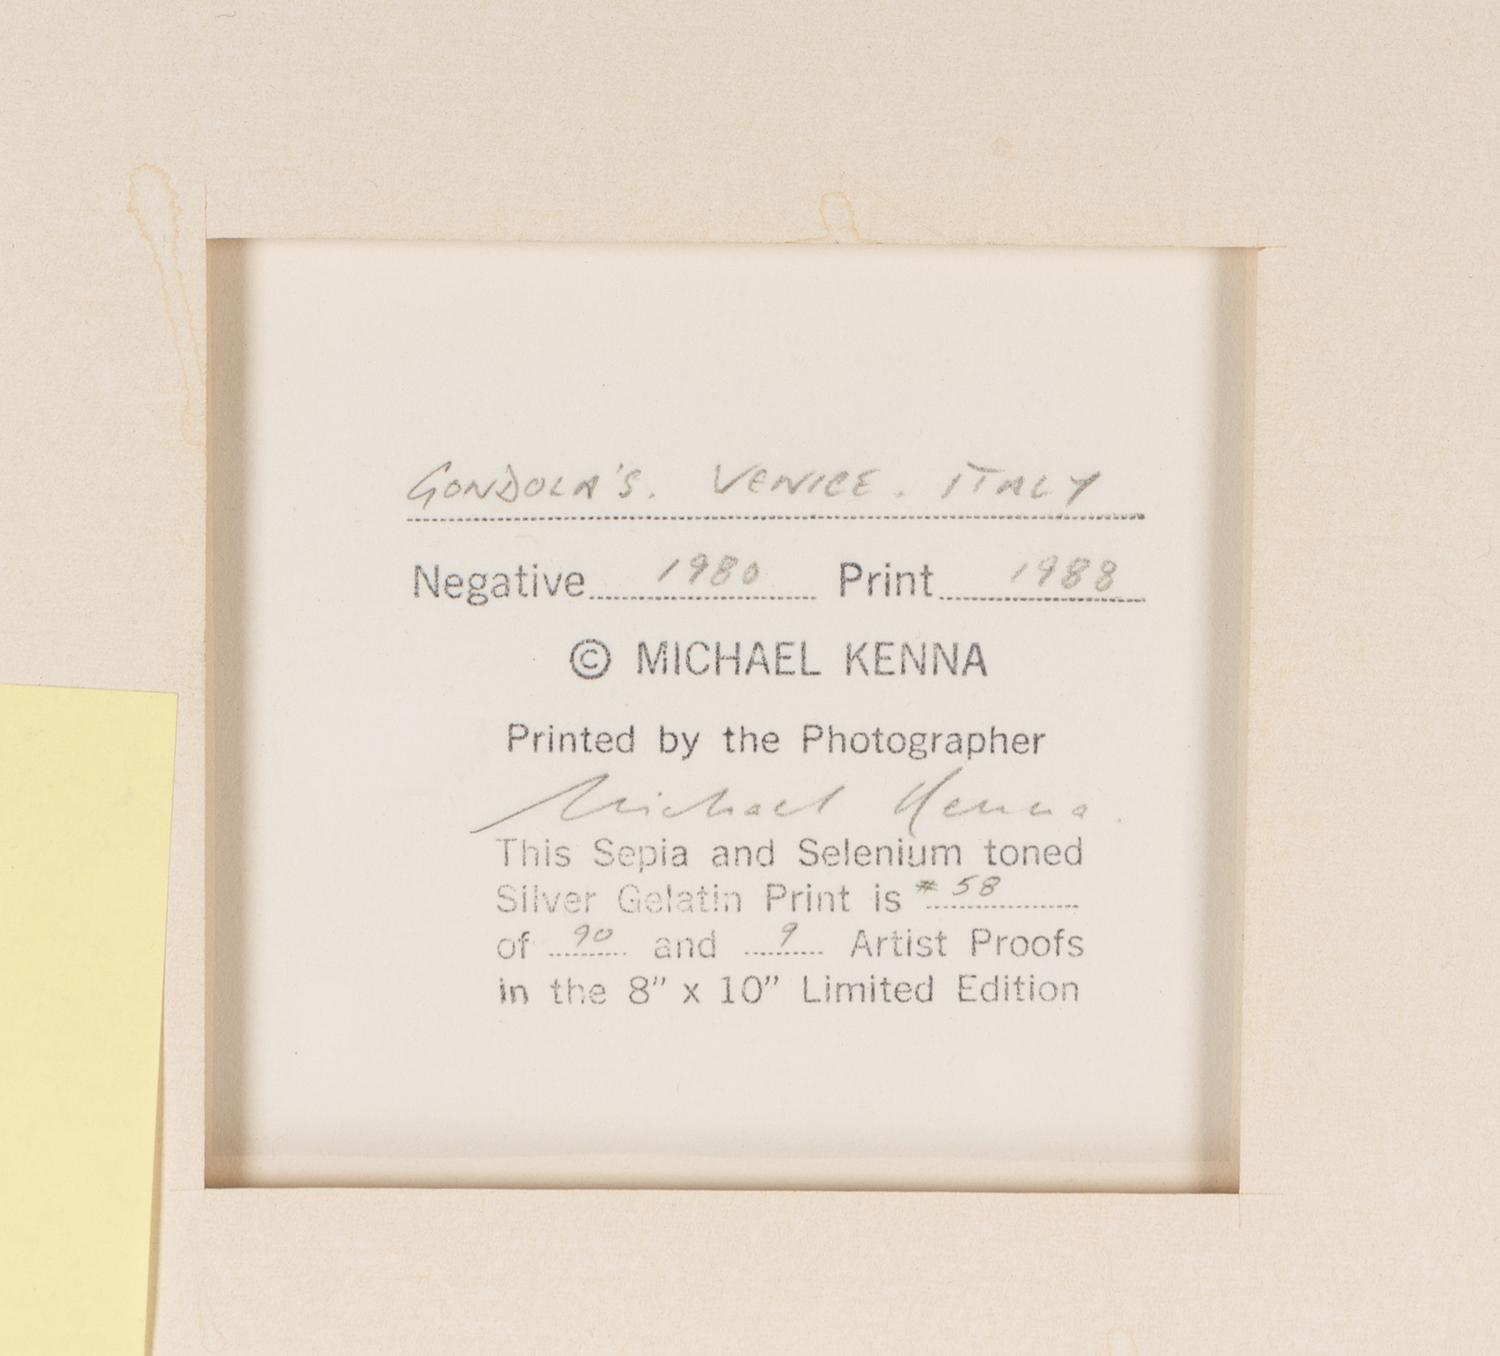 GONDOLA'S. VENICE. ITALY
Negative 1980 Print 1988
© MICHAEL KENNA
Printed by the Photographer
Michael Kenna.
This Sepia and Selenium toned
Silver Gelatin Print is #58
of 90 and 9 Artist Proofs
in the 8" x 10" Limited Edition